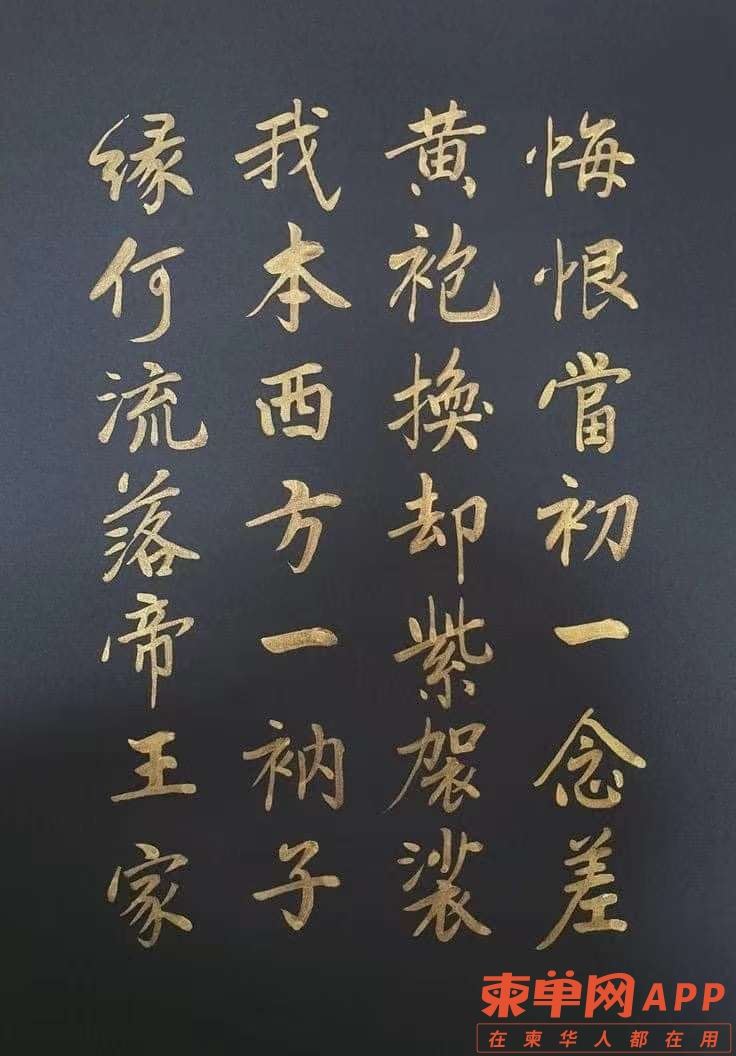 悔恨當初一念差
黄袍換却紫袈裟
我本西方一衲子
緣何流落帝王家
柬单网APP
在柬华人都在用